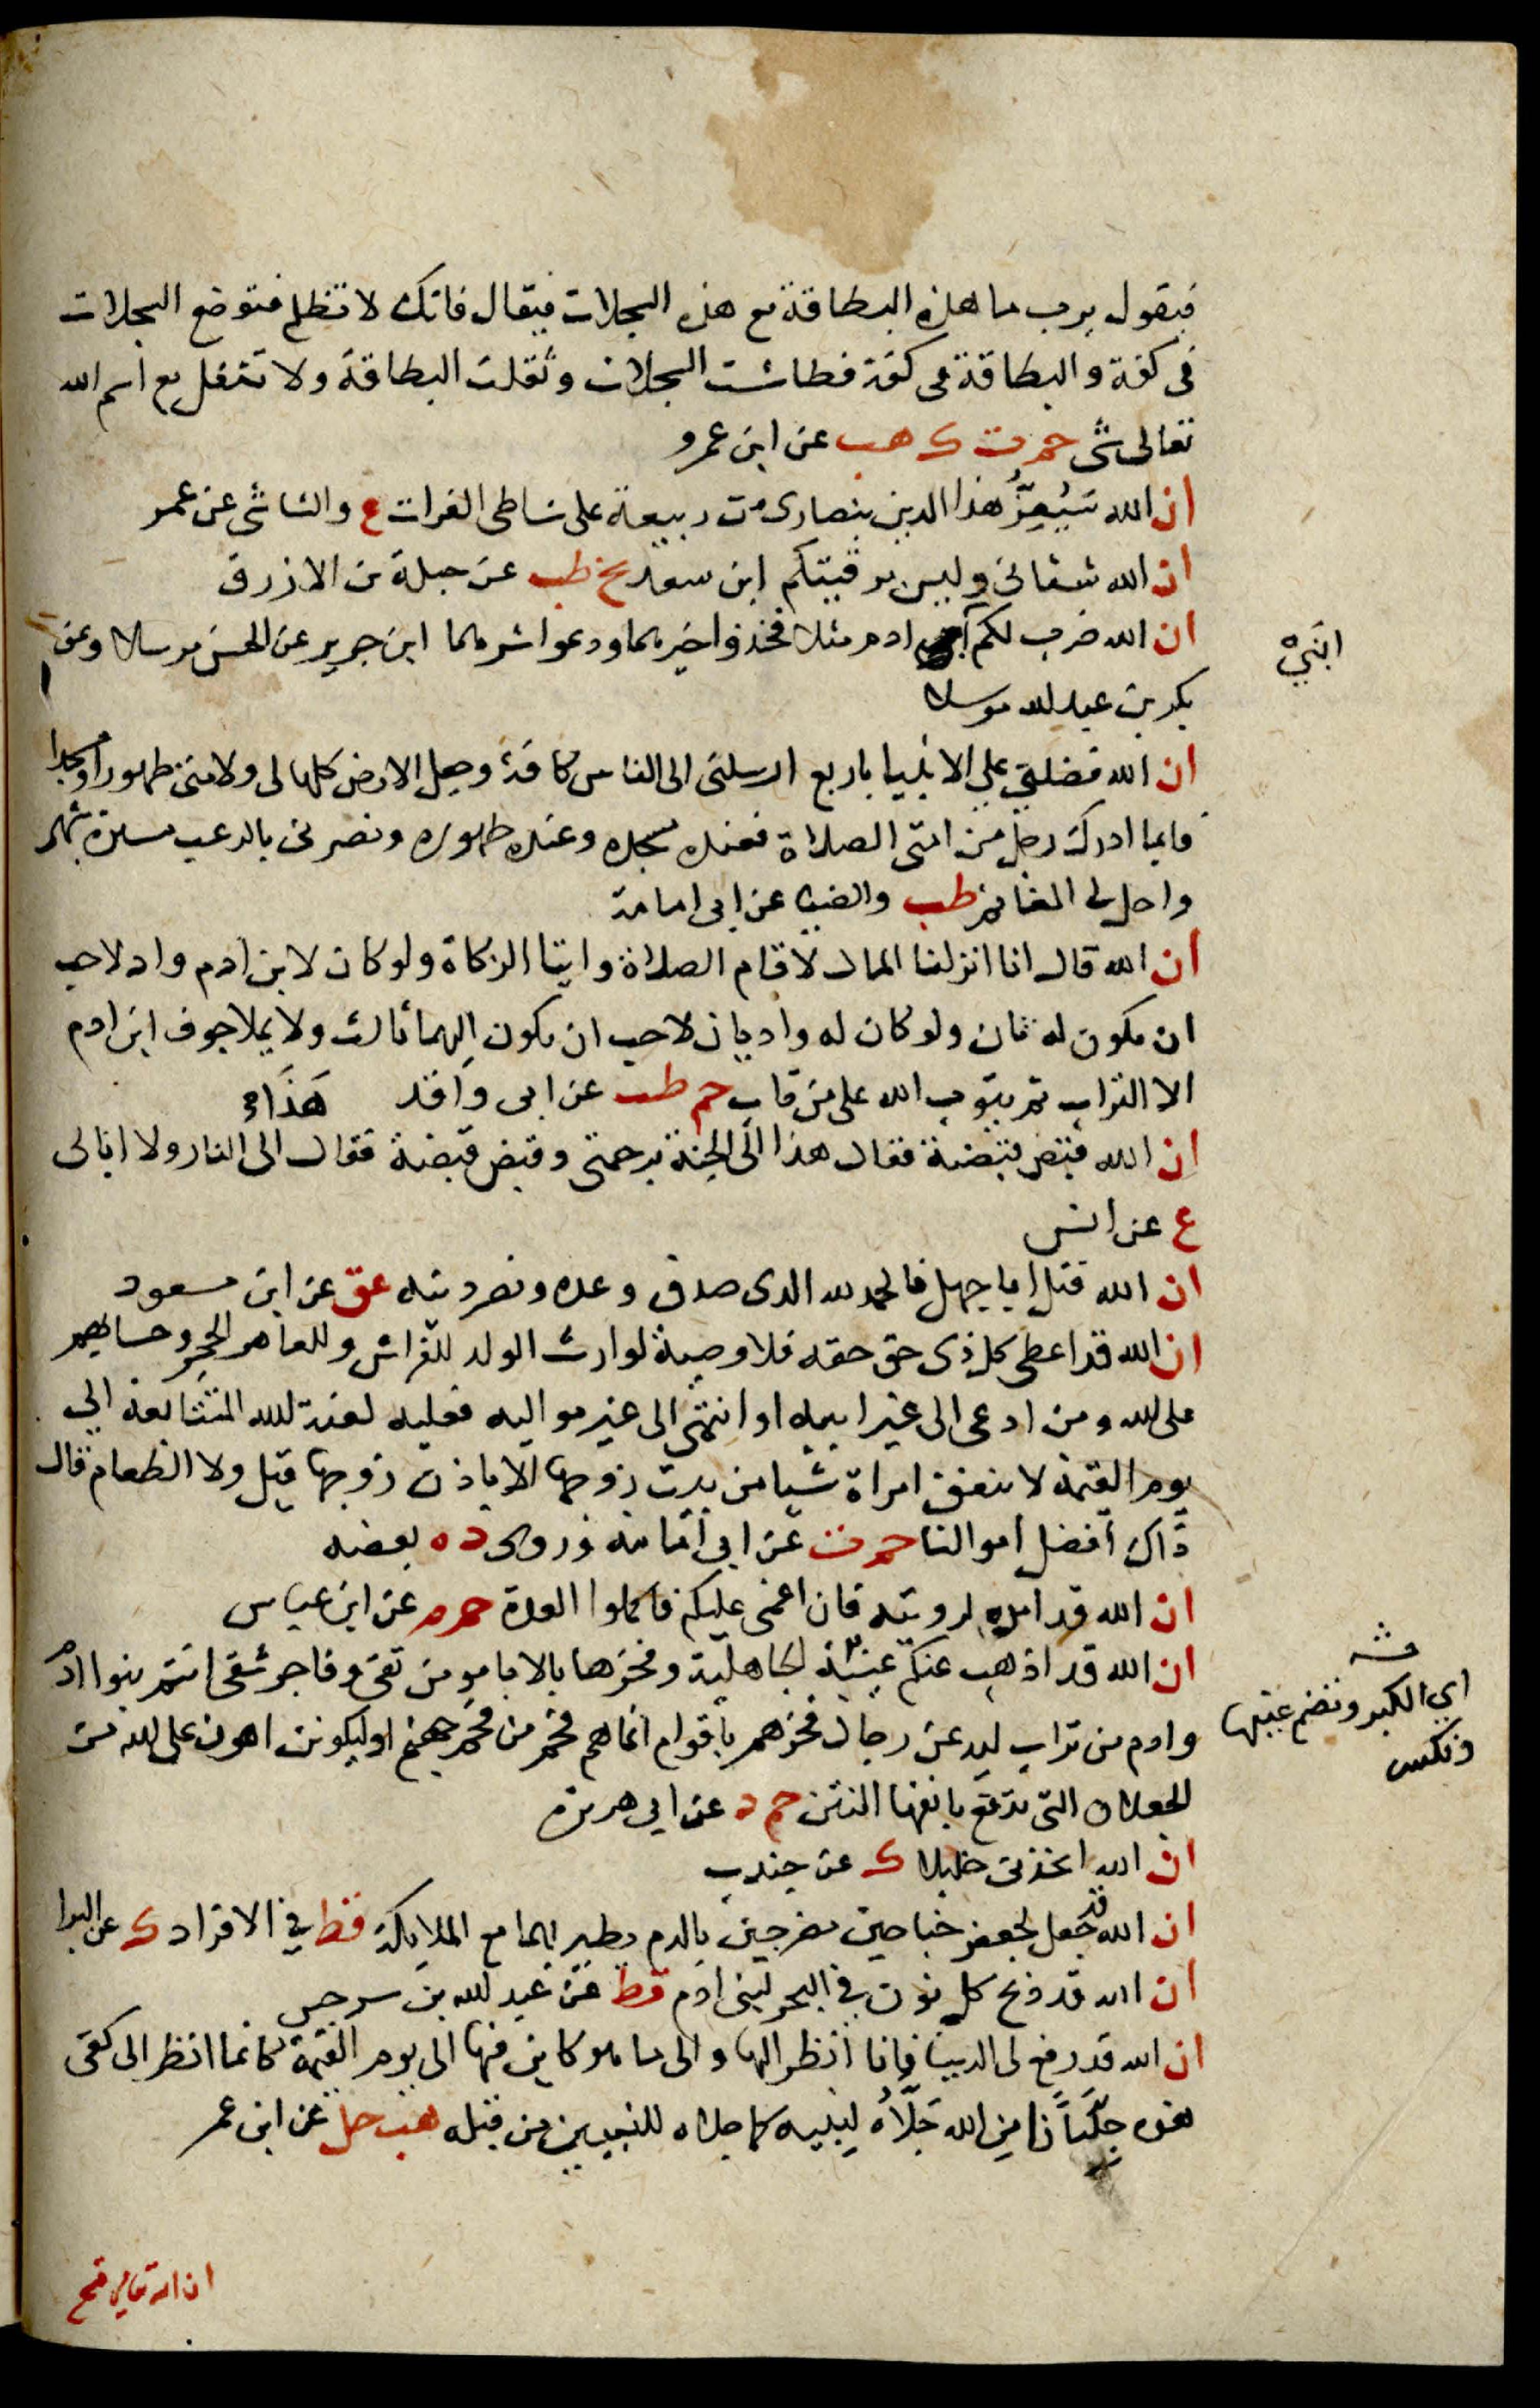 فيقول يرب ما هذه البطاقة مع هذه السجلات فيقال فانك لا تظلم فتوضع السجلات
فى كفة والبطاقة فى كفة فطاشت السجلات وثقلت البطاقة ولا يثقل مع اسم الله
تعالى شى حم ت ك هب عن ابن عمرو
ان الله سَيُعِزُّ هذا الدين بنصارى من ربيعة على شاطى الفرات ع والشاشى عن عمر
ان الله شفانى وليس برقيتكم ابن سعد تخ طب عن جبلة بن الازرق
ان الله ضرب لكم ادم مثلا فخذوا خيرهما ودعوا شرهما ابن جرير عن الحسن مرسلا وعن
ابنَيْ
بكر بن عبد الله مرسلا
ان الله فضلنى على الانبيا باربع ارسلنى الى الناس كافة وجعل الارض كلها لى ولامتى طهورا ومسجدا
فايما ادرك رجل من امتى الصلاة فعنده مسجده وعنده طهوره ونصرنى بالرعب مسيرة شهر
واحل لى المغانم طب والضيا عن ابى امامة
ان الله قال انا انزلنا المال لاقام الصلاة وايتا الزكاة ولو كان لابن ادم واد لاحب
ان يكون له ثان ولو كان له واديان لاحب ان يكون اليهما ثالث ولا يملا جوف ابن ادم
الا التراب ثم يتوب الله على من تاب حم طب عن ابى واقد
ان الله قبض قبضة فقال هذا الى الجنة برحمتى وقبض قبضة فقال الى النار ولا ابالى
ع عن انس
ان الله قتل ابا جهل فالحمد لله الذى صدق وعده ونصر دينه عق عن ابن مسعود
ان الله قد اعطى كل ذى حق حقه فلا وصية لوارث الولد للفراش وللعاهر الحجر وحسابهم
على الله ومن ادعى الى غير ابيه او انتمى الى غير مواليه فعليه لعنة الله المتتابعة الى
يوم القيمة لا تنفق امراة شيا من بيت زوجها الا باذن زوجها قيل ولا الطعام قال
ذاك افضل اموالنا حم ت عن ابى امامة وروى د ه بعضه
ان الله قد امده لرويته فان اغمى عليكم فاكملوا العدة حم م عن ابن عباس
ان الله قد اذهب عنكم عبيّة الجاهلية وفخرها بالابا مومن تقى وفاجر شقى انتم بنوا ادم
اي الكبر وتضم عينها
وتكسر
وادم من تراب ليدعن رجال فخرهم باقوام انما هم فحم من فحم جهنم او ليكونن اهون على الله من
الجعلان التى تدفع بانفها النتن حم د عن ابى هريرة
ان الله اتخذنى خليلا ك عن جندب
ان الله قد جعل لجعفر جناحين مضرجين بالدم يطير بهما مع الملايكة قط فى الافراد ك عن البرا
ان الله قد ذبح كل نون فى البحر لبنى ادم قط عن عبد الله بن سرجس
ان الله قد رفع لى الدنيا فانا انظر اليها والى ما هو كاين فيها الى يوم القيمة كانما انظر الى كفى
هذه جِلِّيَاناً من الله جَلَّاهُ لنبيه كما جلاه للنبيين من قبله هب حل عن ابن عمر
ان الله تعالى فتح